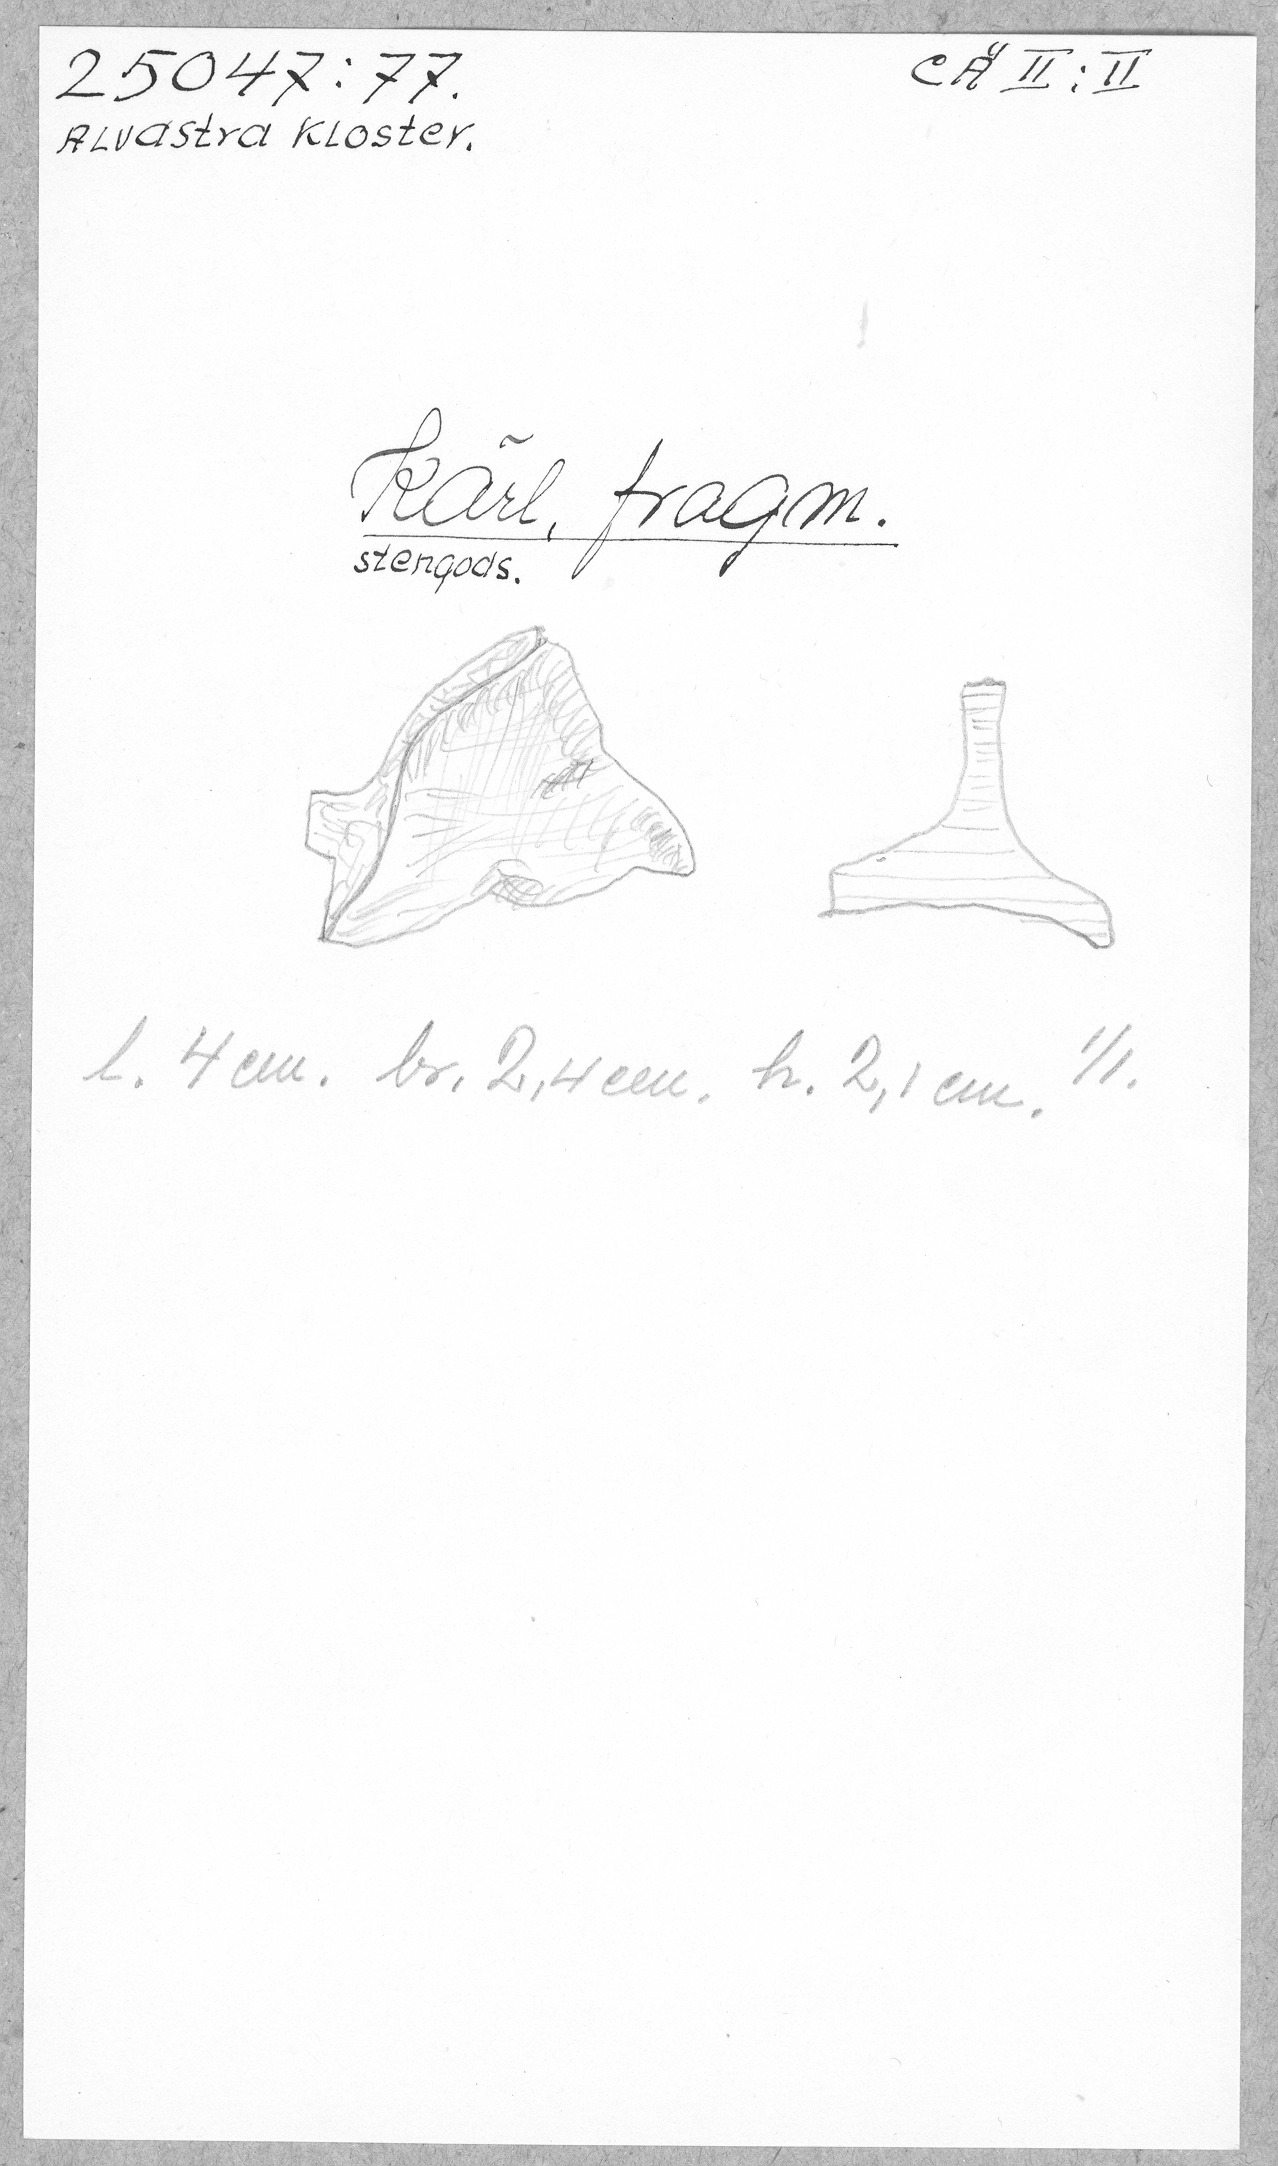 25047:77.
CÄ II:II
Alvastra Kloster.
Kärl, fragm.
stengods.
l. 4 cm. br. 2,4 cm. h. 2,1 cm. 1/1.